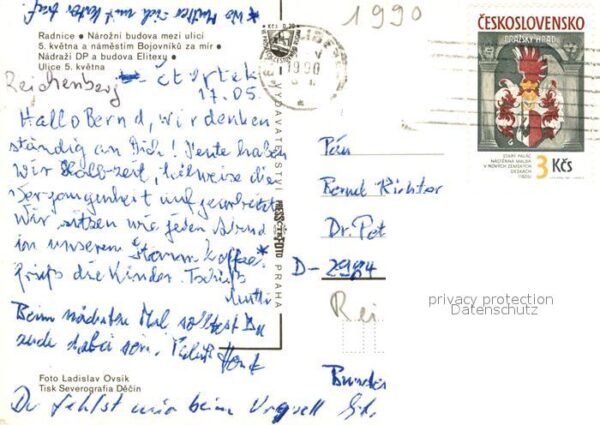 *wo Mutter sich mit Vater traf.
Radnice • Nárožní budova mezi ulicí
5. května a náměstím Bojovníků za mír •
Nádraží DP a budova Elitexu •
Ulice 5. května
Reichenberg
čtvrtek
17.05.
Hallo Bernd, wir denken
ständig an Dich! Heute haben
wir Halbzeit, teilweise die
Vergangenheit aufgearbeitet
Wir sitzen wie jeden Abend
in unserem Stammkaffee*
grüß die Kinder. Tschüß
Mutti
Beim nächsten Mal solltest Du
auch dabei sein.
Du fehlst mir beim
Foto Ladislav Ovsík
Tisk Severografia Děčín
VYDAVATELSTVÍ
PRESSFOTO
PRAHA
Kčs 0,70
1990
1990
ČESKOSLOVENSKO
PRAŽSKÝ HRAD
STARÝ PALÁC
NÁSTĚNNÁ MALBA
V NOVÝCH ZEMSKÝCH
DESKÁCH
3 Kčs
Pán
Bernd Richter
Dr. Pet
D-
Rei
privacy protection
Datenschutz